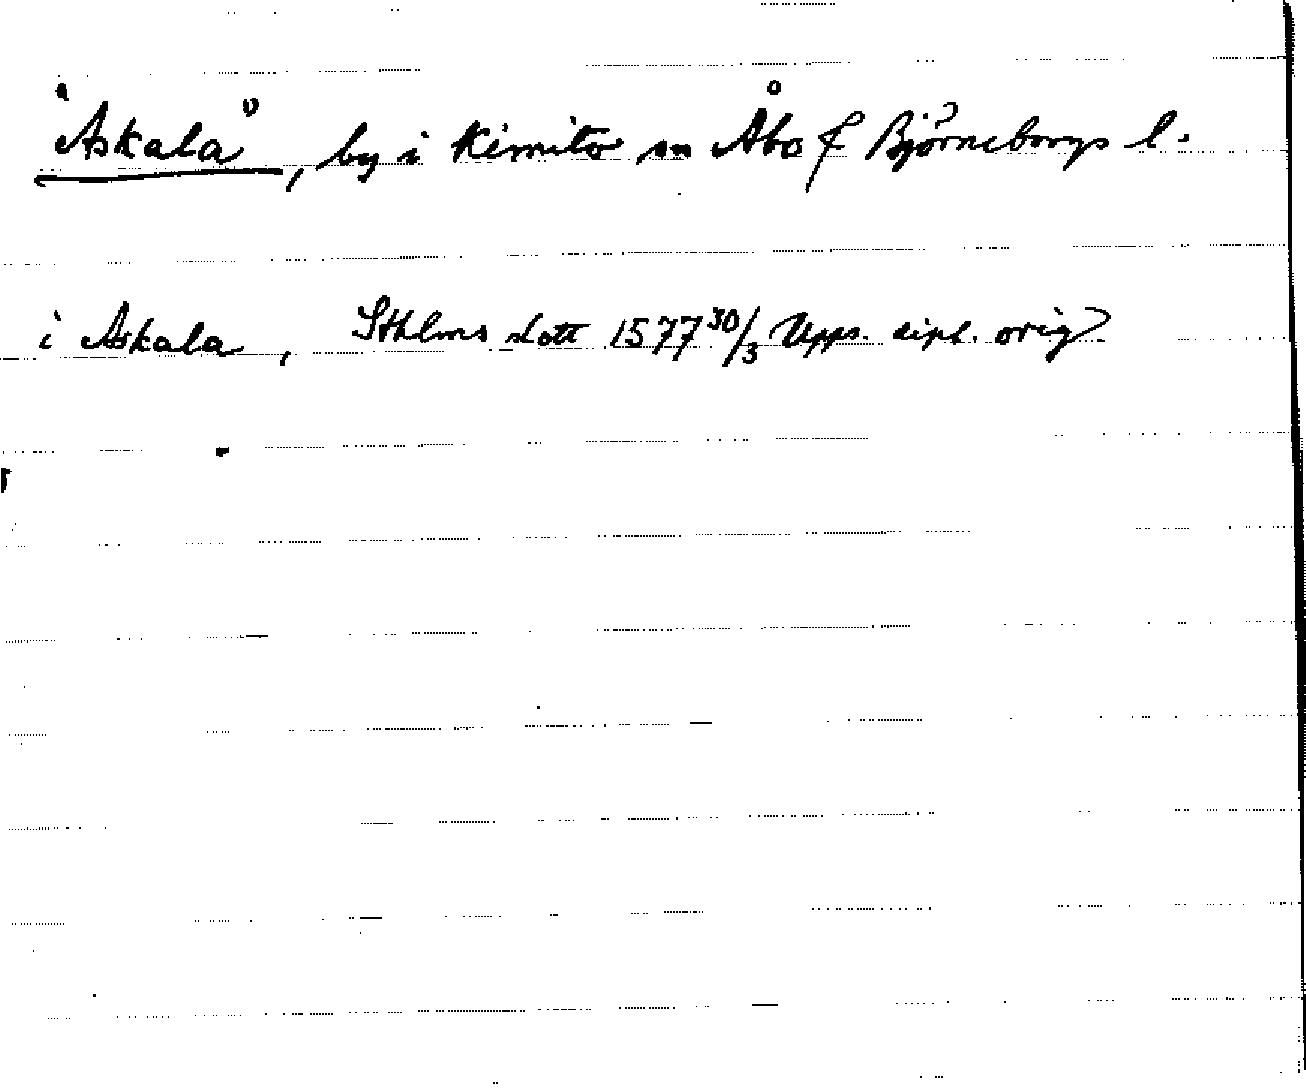 "Askala", by i Kimito sn Åbo f Björneborgs l.
i Askala, Sthlms slott 1577 30/3 Upps. dipl. orig